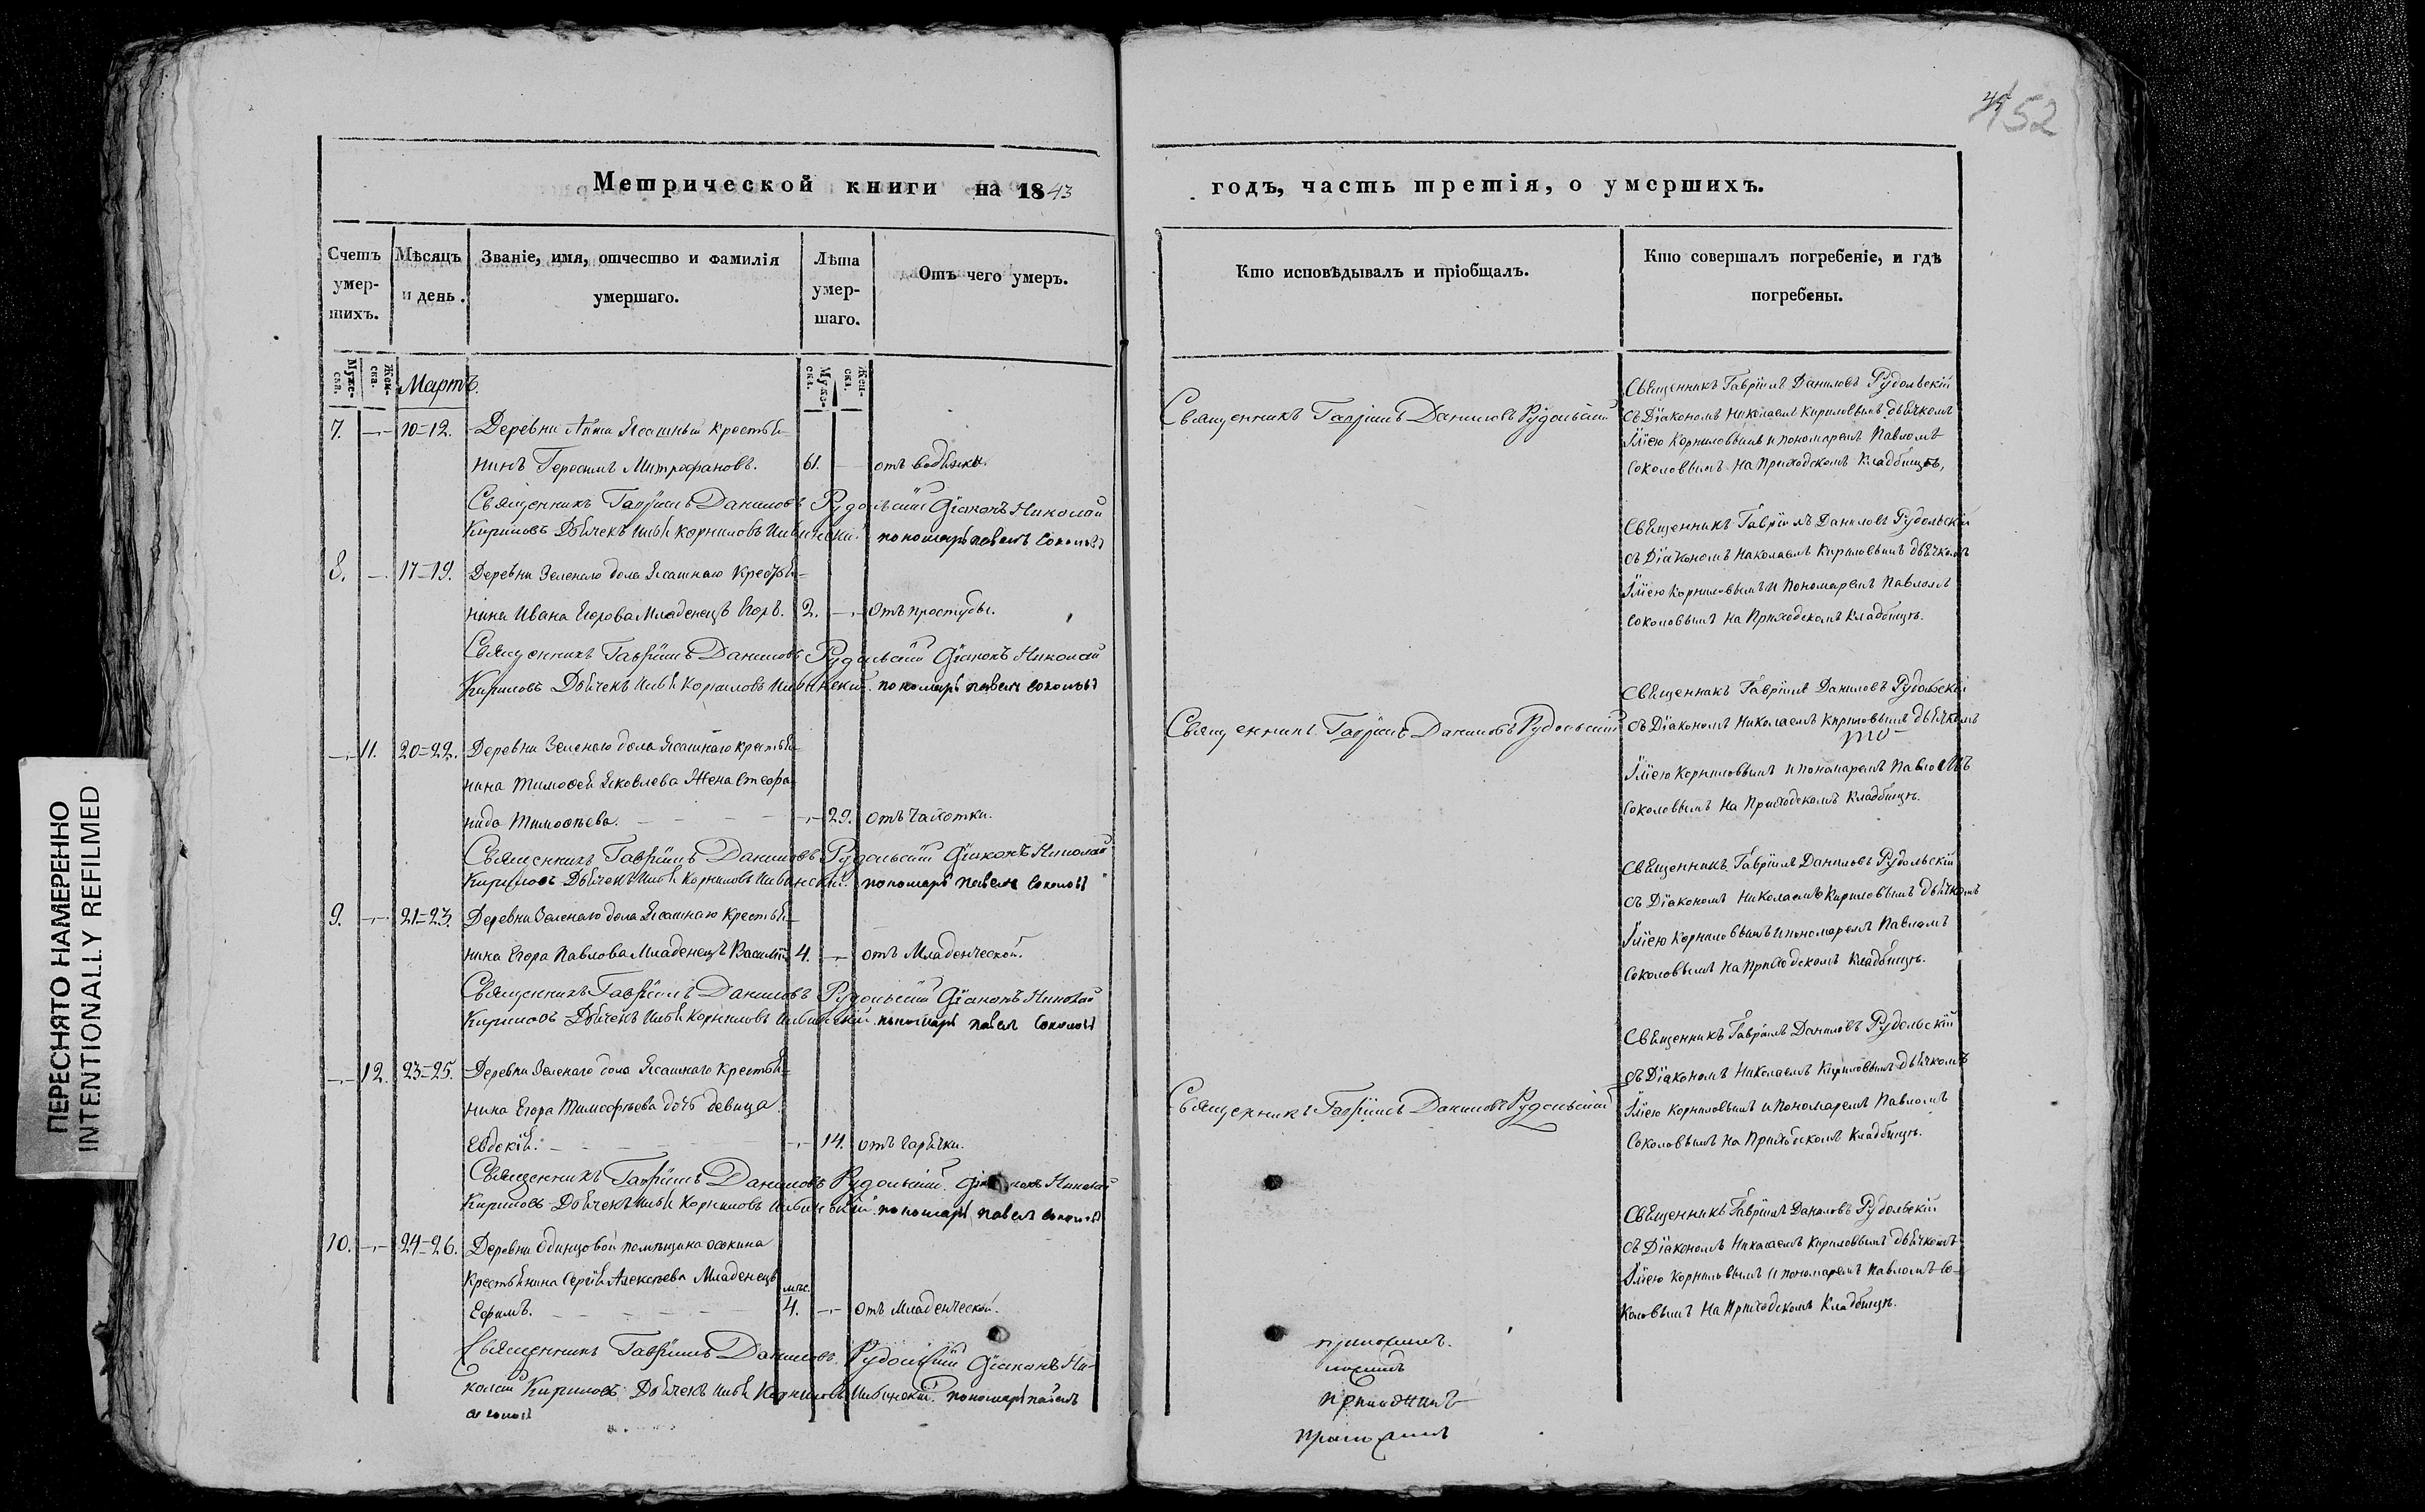 452
Метрической книги на 1843
годъ, часть третія, о умершихъ.
Счетъ умер-шихъ.
Мѣсяцъ и день.
Званіе, имя, отчество и фамилія умершаго.
Лѣта умер-шаго.
Отъ чего умеръ.
Кто исповѣдывалъ и пріобщалъ.
Кто совершалъ погребеніе, и гдѣ погребены.
Мужс-ска.
Жен-ска.
Мартъ.
Мужс-ска.
Жен-ска.
7. — 10=12. Деревни Ясашный крестья-
нинъ Герасимъ Митрофановъ. 61. — отъ водянки.
Священникъ Гавріилъ Даниловъ Рудольскій Діаконъ Николай
Кириловъ Дьячекъ Илья Корниловъ пономарь Павелъ Соколовъ
8. — 17=19. Деревни Зеленаго дола Ясашнаго Крестья-
нина Ивана Егорова Младенецъ Егоръ. 2. — Отъ простуды.
Священникъ Гавріилъ Даниловъ Рудольскій Діаконъ Николай
Кириловъ Дьячекъ Илья Корниловъ пономарь Павелъ Соколовъ
— 11. 20=22. Деревни Зеленаго дола Ясашнаго крестья-
нина Тимофея Яковлева Жена Стефа-
нида Тимофѣева. — 29. отъ чахотки.
Священникъ Гавріилъ Даниловъ Рудольскій Діаконъ Николай
Кириловъ Дьячекъ Илья Корниловъ пономарь Павелъ Соколовъ
9. — 21=23. Деревни Зеленаго дола Ясашнаго Крестья-
нина Егора Павлова Младенецъ Василій 4. — отъ Младенческой.
Священникъ Гавріилъ Даниловъ Рудольскій Діаконъ Николай
Кириловъ Дьячекъ Илья Корниловъ пономарь Павелъ Соколовъ
— 12. 23=25. Деревни Зеленаго дола Ясашнаго Крестья-
нина Егора Тимофѣева дочь девица
Евдокія. — 14. отъ Горячки.
Священникъ Гавріилъ Даниловъ Рудольскій Діаконъ Николай
Кириловъ Дьячекъ Илья Корниловъ пономарь Павелъ Соколовъ
10. — 24=26. Деревни Одинцовой помѣщика Осокина
Крестьянина Сергѣя Алексѣева Младенецъ мѣс.
Ефимъ. 4. — Отъ Младенческой.
Священникъ Гавріилъ Даниловъ Рудольскій Діаконъ Ни-
колай Кириловъ Дьячекъ Илья Корниловъ пономарь Павелъ
Соколовъ
Священникъ Гавріилъ Даниловъ Рудольскій
Священникъ Гавріилъ Даниловъ Рудольскій
Священникъ Гавріилъ Даниловъ Рудольскій
Священникъ Гавріилъ Даниловъ Рудольскій
съ Діакономъ Николаемъ Кириловымъ дьячкомъ
Ильею Корниловымъ и пономаремъ Павломъ
Соколовымъ на Приходскомъ Кладбищѣ,
Священникъ Гавріилъ Даниловъ Рудольскій
съ Діакономъ Николаемъ Кириловымъ дьячкомъ
Ильею Корниловымъ и Пономаремъ Павломъ
Соколовымъ на Приходскомъ Кладбищѣ.
Священникъ Гавріилъ Даниловъ Рудольскій
съ Діакономъ Николаемъ Кириловымъ дьячкомъ
Ильею Корниловымъ и пономаремъ Павломъ
Соколовымъ на Приходскомъ Кладбищѣ.
Священникъ Гавріилъ Даниловъ Рудольскій
съ Діакономъ Николаемъ Кириловымъ дьячкомъ
Ильею Корниловымъ и пономаремъ Павломъ
Соколовымъ на Приходскомъ Кладбищѣ.
Священникъ Гавріилъ Даниловъ Рудольскій
съ Діакономъ Николаемъ Кириловымъ дьячкомъ
Ильею Корниловымъ и Пономаремъ Павломъ
Соколовымъ на Приходскомъ Кладбищѣ.
Священникъ Гавріилъ Даниловъ Рудольскій
съ Діакономъ Николаемъ Кириловымъ дьячкомъ
Ильею Корниловымъ и пономаремъ Павломъ Со-
коловымъ на Приходскомъ Кладбищѣ.
ПЕРЕСНЯТО НАМЕРЕННО
INTENTIONALLY REFILMED